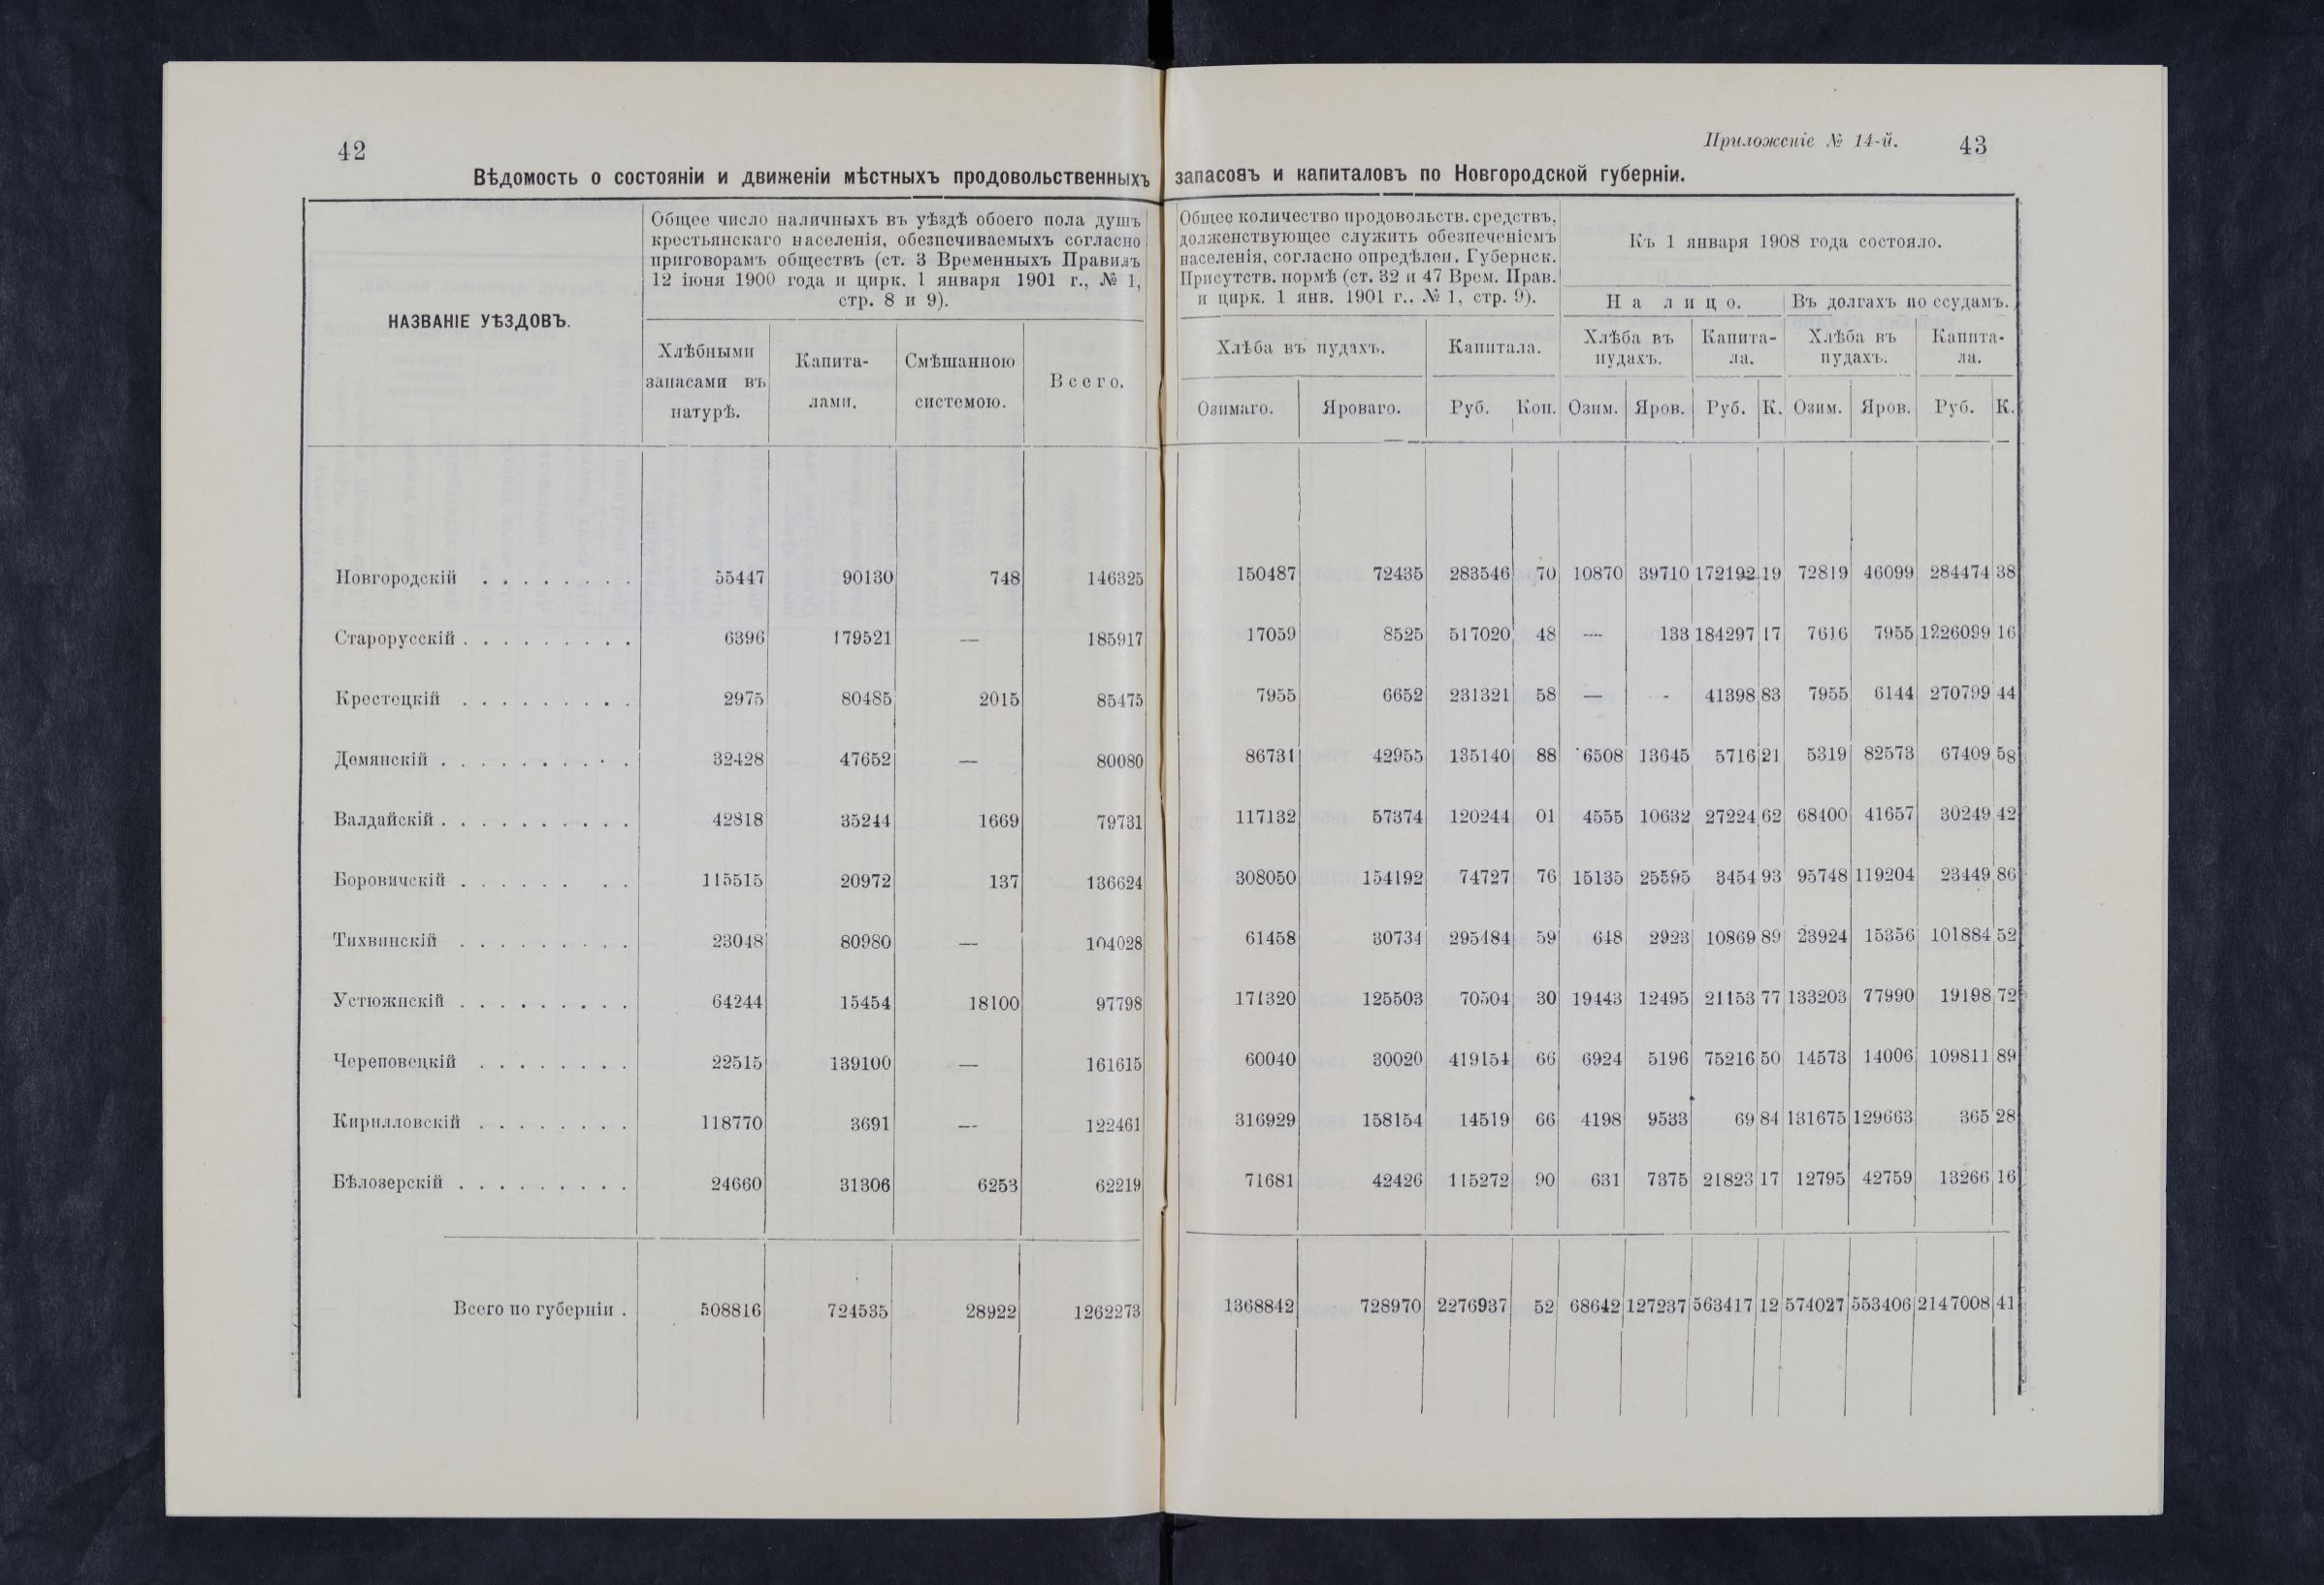 42
Вѣдомость о состояніи и движеніи мѣстныхъ продовольственныхъ
НАЗВАНІЕ УѢЗДОВЪ.
Общее число наличныхъ въ уѣздѣ обоего пола душъ
крестьянскаго населенія, обезпечиваемыхъ согласно
приговорамъ обществъ (ст. 3 Временныхъ Правилъ
12 іюня 1900 года и цирк. 1 января 1901 г., № 1,
стр. 8 и 9).
Хлѣбными
запасами въ
натурѣ.
Капита-
лами.
Смѣшанною
системою.
Всего.
Новгородскій . . . . . . . . 55447 90130 748 146325
Старорусскій . . . . . . . . . 6396 179521 — 185917
Крестецкій . . . . . . . . . 2975 80485 2015 85475
Демянскій . . . . . . . . . . 32428 47652 — 80080
Валдайскій . . . . . . . . . . 42818 35244 1669 79731
Боровичскій . . . . . . . . 115515 20972 137 136624
Тихвинскій . . . . . . . . . 23048 80980 — 104028
Устюжнскій . . . . . . . . . 64244 15454 18100 97798
Череповецкій . . . . . . . . 22515 139100 — 161615
Кирилловскій . . . . . . . . 118770 3691 — 122461
Бѣлозерскій . . . . . . . . . 24660 31306 6253 62219
Всего по губерніи . 508816 724535 28922 1262273
Приложеніе № 14-й. 43
запасовъ и капиталовъ по Новгородской губерніи.
Общее количество продовольств. средствъ,
долженствующее служить обезпеченіемъ
населенія, согласно опредѣлен. Губернск.
Присутств. нормѣ (ст. 32 и 47 Врем. Прав.
и цирк. 1 янв. 1901 г., № 1, стр. 9).
Къ 1 января 1908 года состояло.
На лицо. Въ долгахъ по ссудамъ.
Хлѣба въ пудахъ. Капитала.
Хлѣба въ
пудахъ.
Капита-
ла.
Хлѣба въ
пудахъ.
Капита-
ла.
Озимаго. Яроваго. Руб. Коп. Озим. Яров. Руб. К. Озим. Яров. Руб. К.
150487 72435 283546 70 10870 39710 172192 19 72819 46099 284474 38
17059 8525 517020 48 — 133 184297 17 7616 7955 1226099 16
7955 6652 231321 58 — - 41398 83 7955 6144 270799 44
86731 42955 135140 88 6508 13645 5716 21 5319 82573 67409 58
117132 57374 120244 01 4555 10632 27224 62 68400 41657 30249 42
308050 154192 74727 76 15135 25595 3454 93 95748 119204 23449 86
61458 30734 295484 59 648 2923 10869 89 23924 15356 101884 52
171320 125503 70504 30 19443 12495 21153 77 133203 77990 19198 72
60040 30020 419154 66 6924 5196 75216 50 14573 14006 109811 89
316929 158154 14519 66 4198 9533 69 84 131675 129663 365 28
71681 42426 115272 90 631 7375 21823 17 12795 42759 13266 16
1368842 728970 2276937 52 68642 127237 563417 12 574027 553406 2147008 41